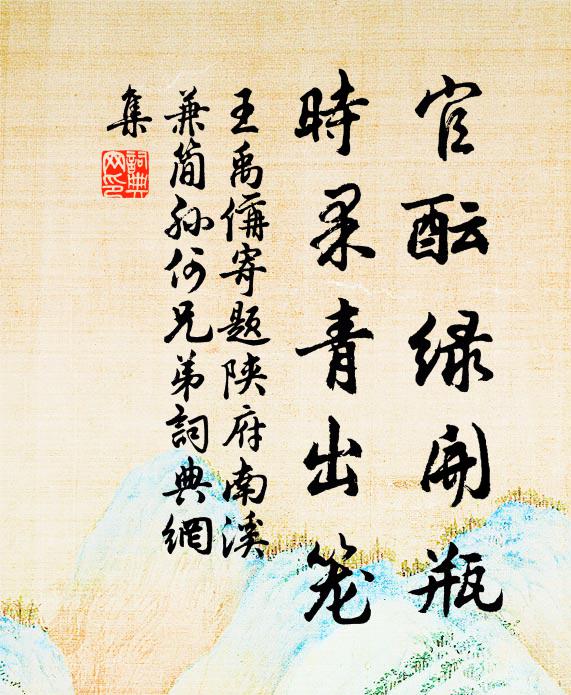 官酝绿開瓶
時果青出笼
王禹偁寄题陕府南溪
兼简孫何兄弟詞典網
集
詞典网印